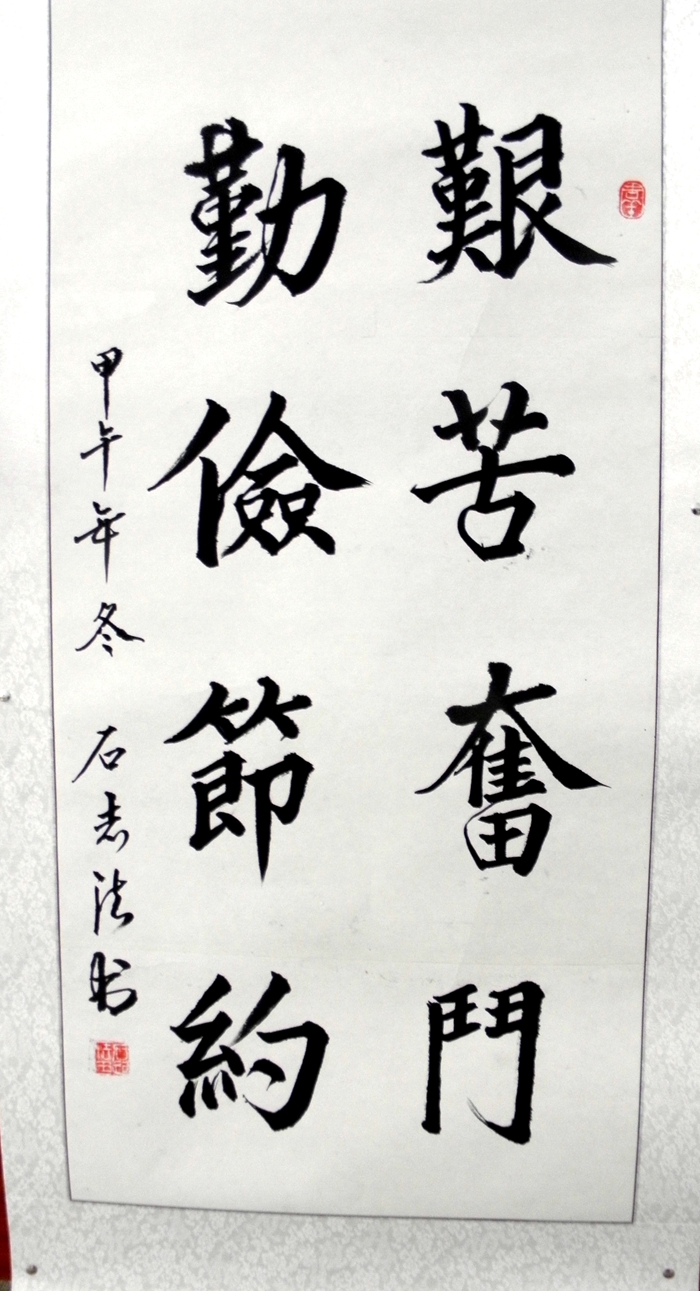 艱苦奮鬥
勤儉節約
甲午年冬 石志法书